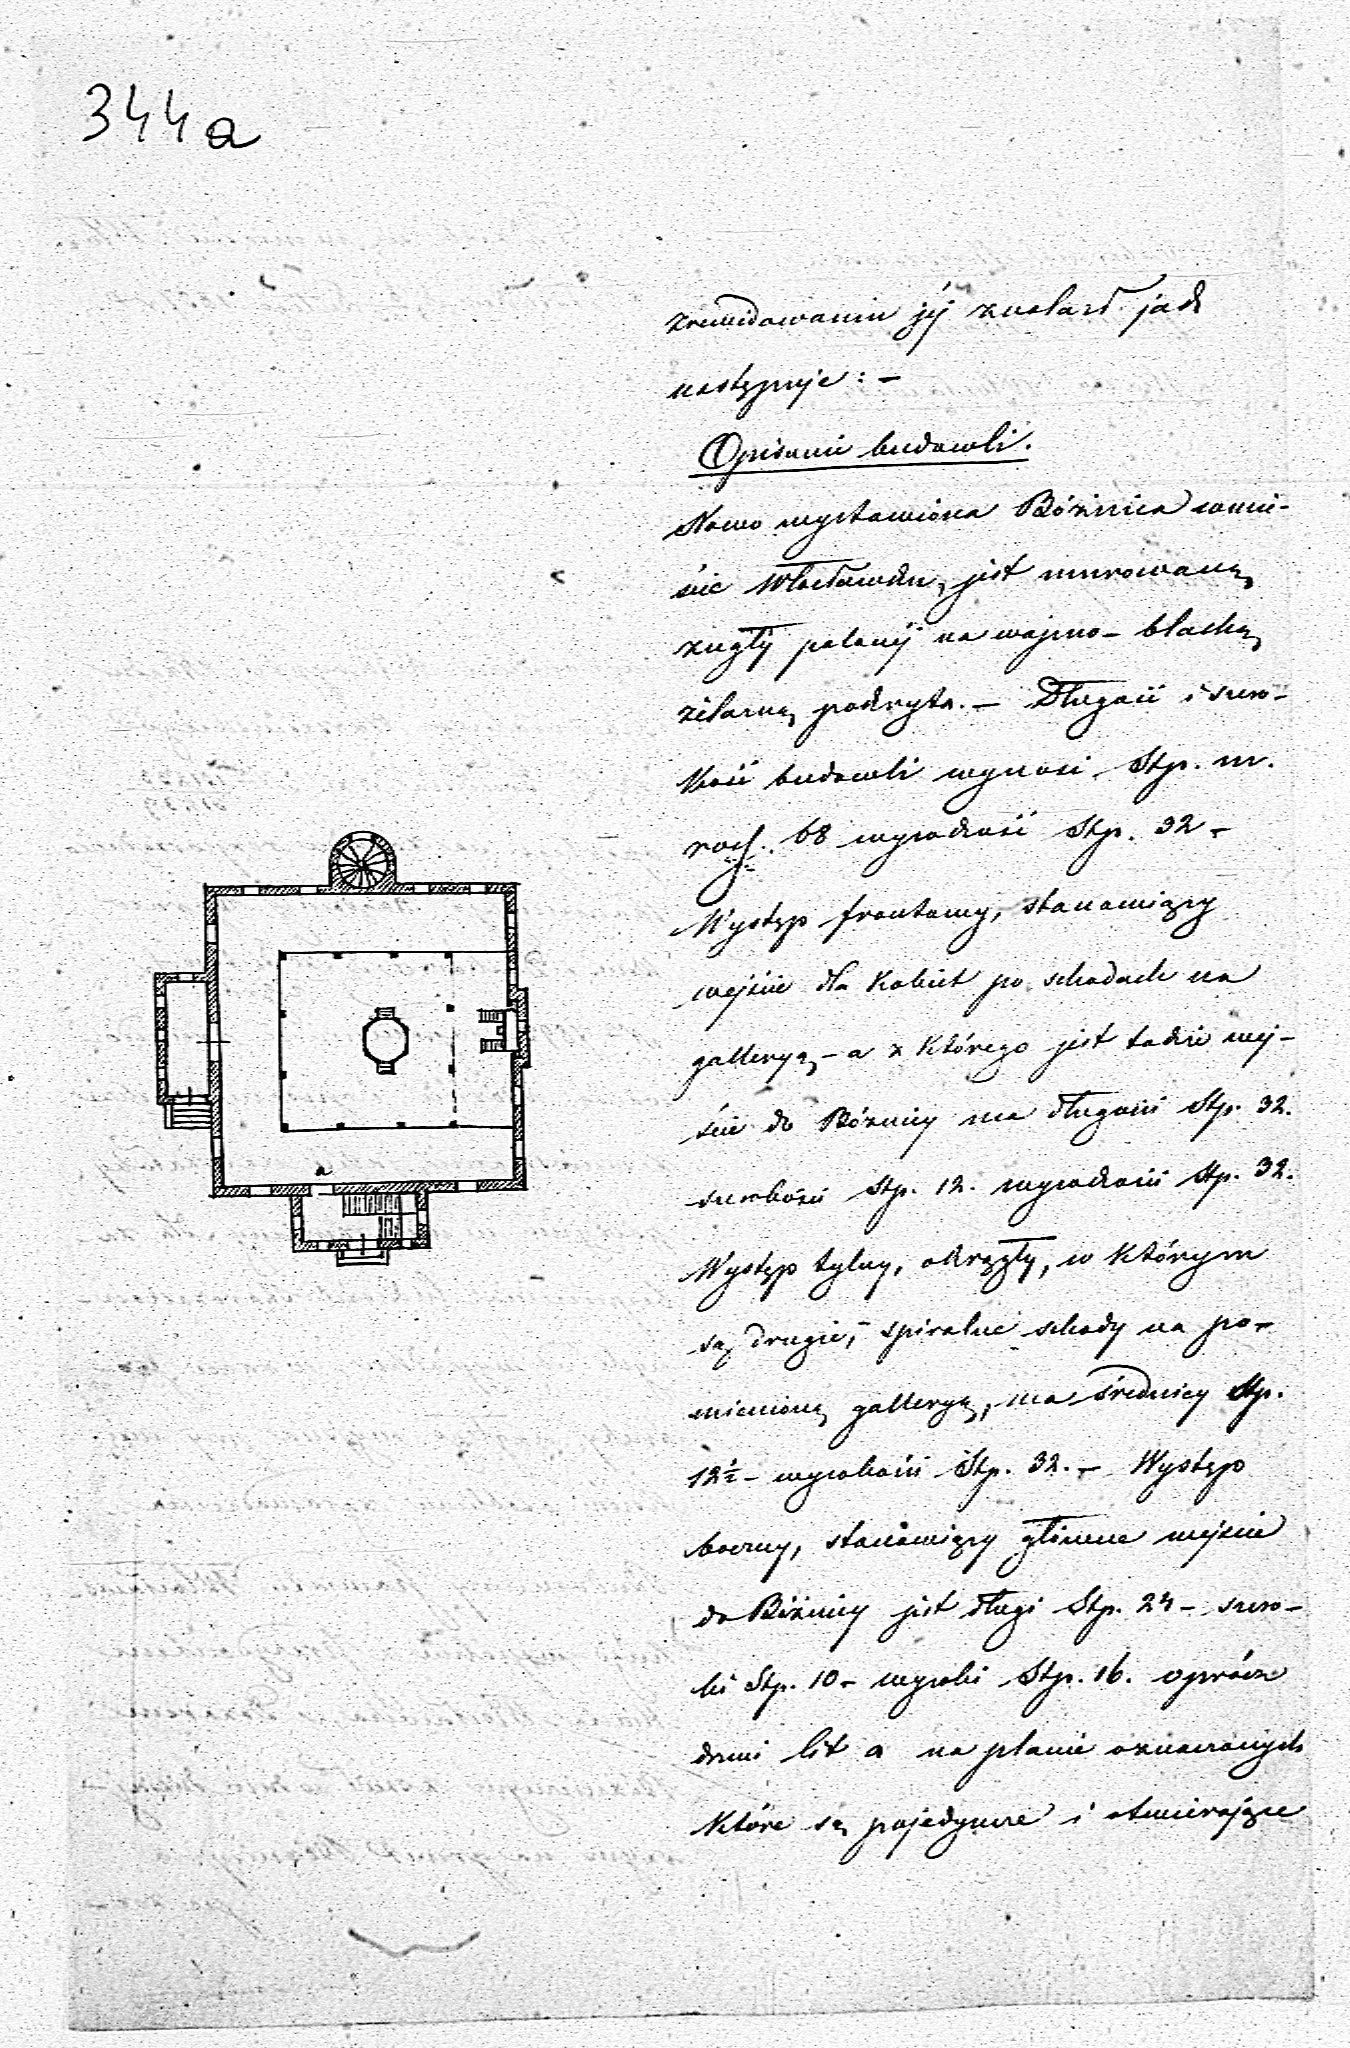 344a
zrewidowaniu jéj znalazł jak
następuje: –
Opisanie budowli.
Nowo wystawiona Bóżnica w mie-
ście Włocławku, jest murowaną
z cegły palonéj na wapno – blachą
żelazną pokryta. – Długość i szero-
kość budowli wynosi Stp. m.
68 wysokość Stp. 32 –
Występ frontowy, stanowiący
wejście dla kobiet po schodach na
galleryą – a z którego jest także wej-
ście do Bóżnicy ma długości Stp. 32.
szerokości Stp. 12. wysokości Stp. 32.
Występ tylny, okrągły, w którym
są drugie, spiralne schody na po-
mienioną galleryą, ma średnicy Stp.
12½ – wysokości Stp. 32. – Występ
boczny, stanowiący główne wejście
do Bóżnicy jest długi Stp. 24 – szero-
ki Stp. 10 – wysoki Stp. 16. oprócz
drzwi lit a na planie oznaczonych
które są pojedyncze i otwierające
a